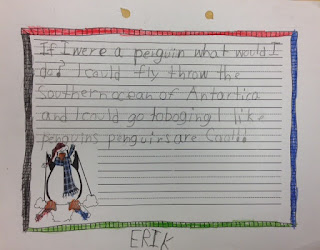 If I were a penguin what would I
do? I could fly throw the
Southern ocean of Antartica
and I could go toboging! I like
penguins penguins are Cooll!
ERIK